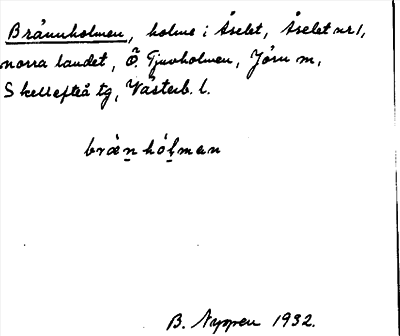 Brännholmen, holme i Åselet, Åselet nr 1,
norra landet, Ö. Tjuvholmen, Jörn sn,
Skellefteå tg, Västerb. l.
bràn̲hól̲man
B. Nyppen 1932.